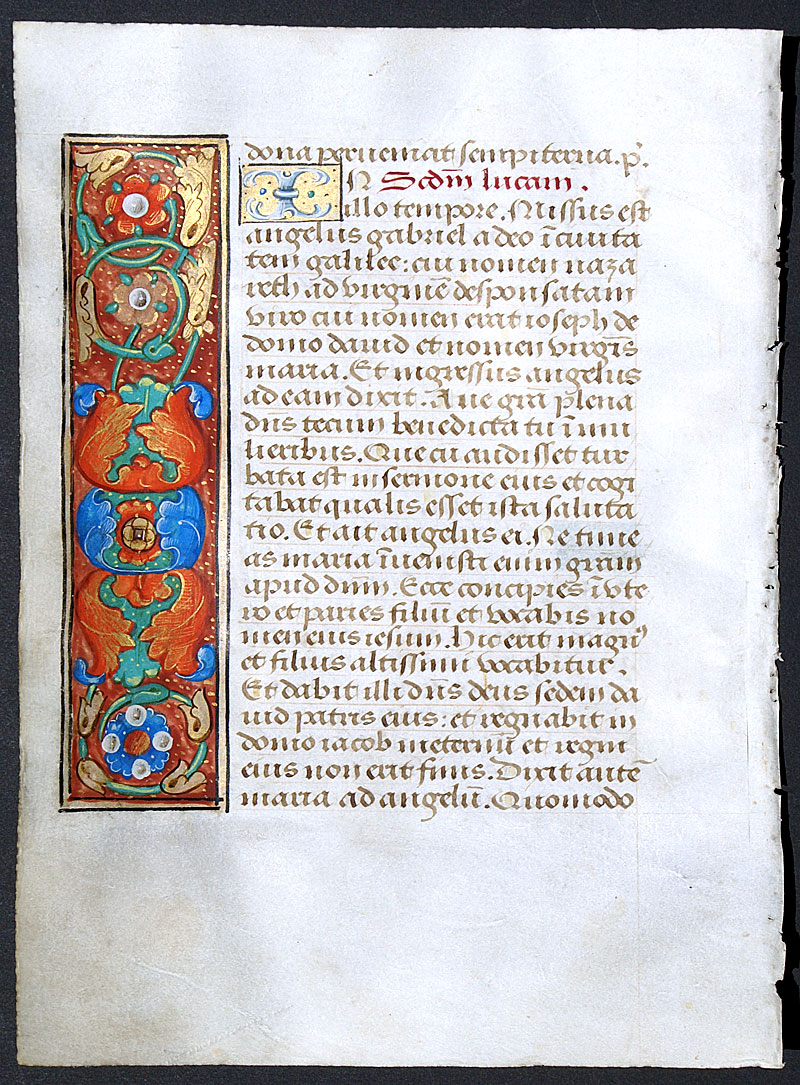 dona perueniat sempiterna. p̲.
IN Scdm̄ lucam.
illo tempore. Missus est
angelus gabriel a deo ī ciuita
tem galilee: cui nomen naza
reth ad virginē desponsatam
viro cui nomen erat ioseph de
domo dauid et nomen virgīs
maria. Et ingressus angelus
ad eam dixit. Aue grā plena
dn̄s tecum benedicta tu ī mu
lieribus. Que cū audisset tur
bata est in sermone eius et cogi
tabat qualis esset ista saluta
tio. Et ait angelus ei. Ne time
as maria īuenisti enim grām
apud dnm̄. Ecce concipies ī vte
ro et paries filiū et vocabis no
men eius iesum. hic erit magnꝰ
et filius altissimi vocabitur.
Et dabit illi dn̄s deus sedem da
uid patris eius: et regnabit in
domo iacob ineternū et regni
eius non erit finis. Dixit autē
maria ad angelū. Quomodo